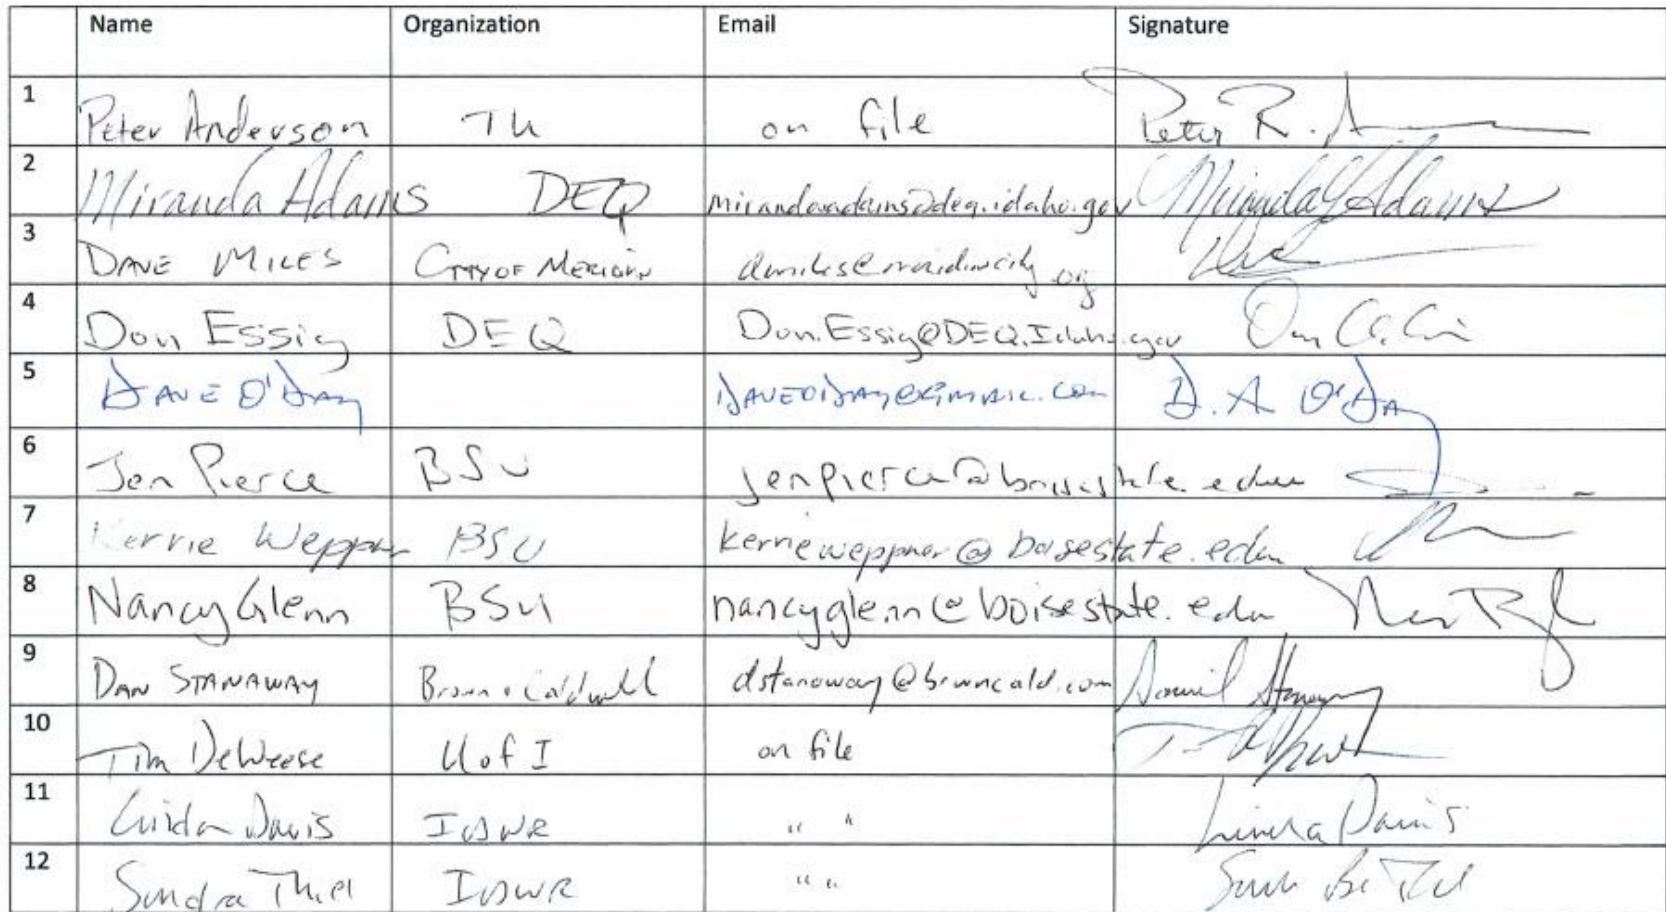 Name Organization Email Signature
1 Peter Anderson TU on file Peter R. A
2 Miranda Adams DEQ miranda.adams@deq.idaho.gov Miranda Adams
3 DAVE MILES CITY OF MERIDIAN dmiles@meridiancity.org
4 Don Essig DEQ Don.Essig@DEQ.Idaho.gov
5 DAVE O'DAY DAVEODAY@GMAIL.COM D. A O'DAY
6 Jen Pierce BSU jenpierce@boisestate.edu
7 Kerrie Weppner BSU kerrieweppner@boisestate.edu
8 Nancy Glenn BSU nancyglenn@boisestate.edu
9 DAN STANAWAY Brown & Caldwell dstanaway@brwncald.com Daniel Stanaway
10 Tim DeWeese U of I on file
11 Linda Davis IDWR " " Linda Davis
12 Sandra Thiel IDWR " "